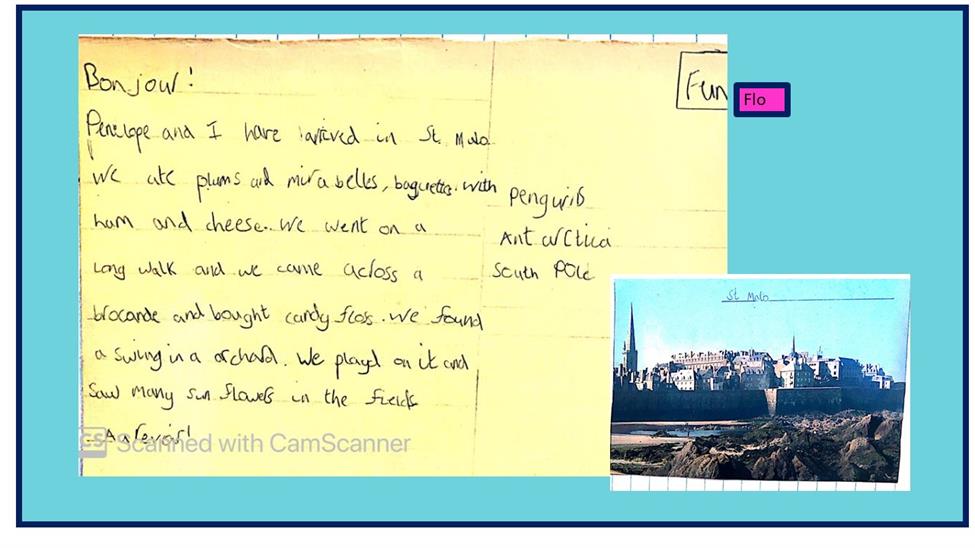 Bonjour!
Penelope and I have arrived in St. Malo.
We ate plums and mirabelles, baguettes with
ham and cheese. We went on a
long walk and we came across a
brocande and bought candy floss. We found
a swing in a orchard. We played on it and
saw many sun flowers in the fields
Fun
Penguins
Antarctica
South Pole
Flo
St Malo
CS Scanned with CamScanner